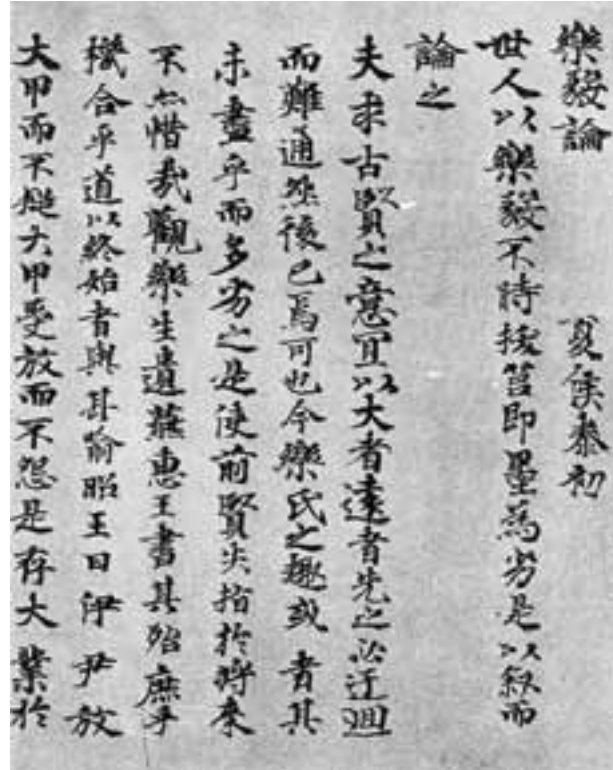 樂毅論 夏侯泰初
世人以樂毅不時拔莒即墨為劣是以叙而
論之
夫求古賢之意宜以大者遠者先之必迂迴
而難通然後已焉可也今樂氏之趣或者其
未盡乎而多劣之是使前賢失指於將來
不亦惜哉觀樂生遺燕惠王書其殆庶乎
機合乎道以終始者與其喻昭王曰伊尹放
大甲而不疑大甲受放而不怨是存大業於